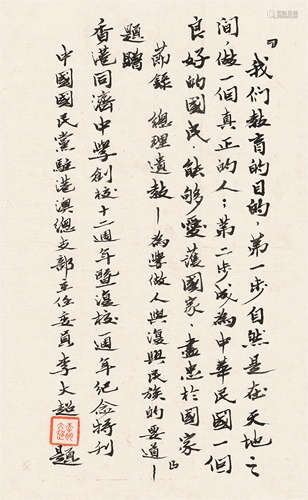 『我们教育的目的，第一步自然是在天地之
间，做一個真正的人；第二步成為中華民國一個
良好的國民，能够愛護國家，盡忠於國家
節錄 總理遺教－為學做人與復興民族的要道－』
題贈
香港同濟中學創校十二週年暨復校一週年紀念特刊
中國國民黨駐港澳總支部主任委員李大超題